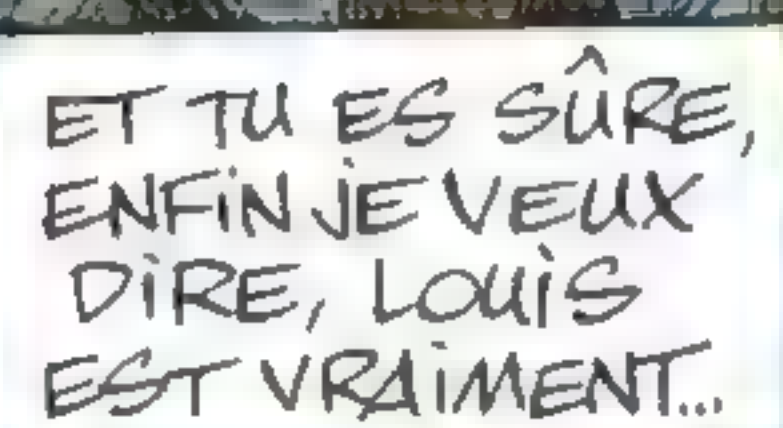 ET TU ES SÛRE,
ENFiN jE VEUX
DiRE, LOUiS
EST VRAiMENT...